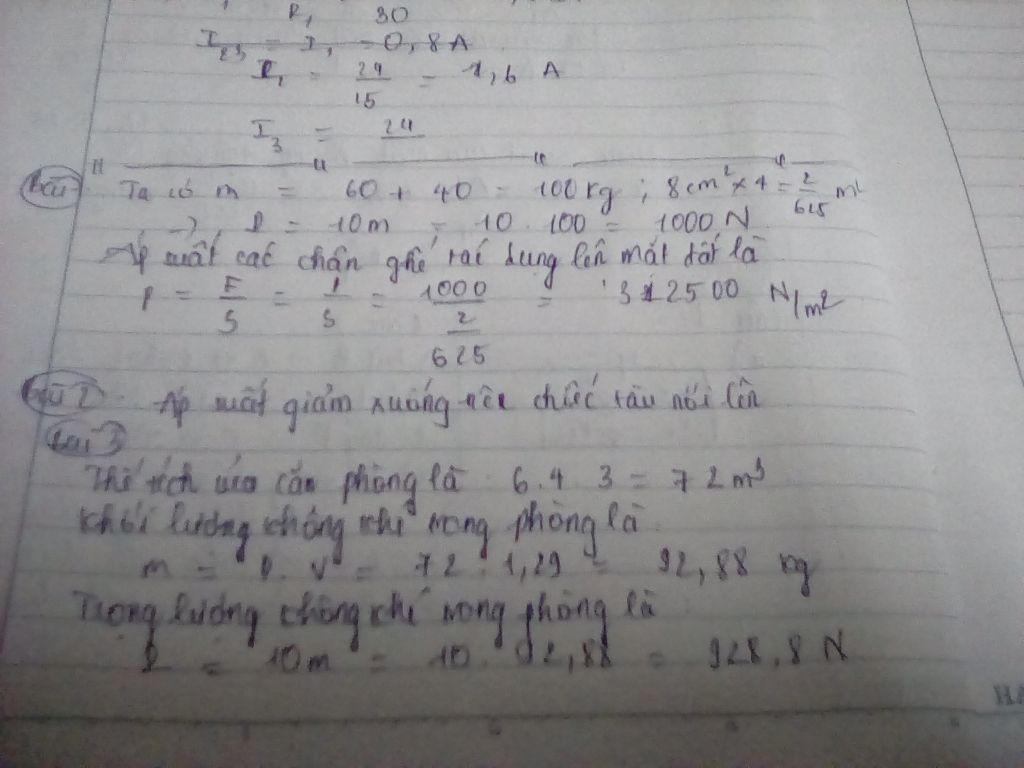 R₁ 30
I₂₃ = I₁ = 0,8 A
I₂ = 24/15 = 1,6 A
I₃ = 24
Bài 1 Ta có m = 60 + 40 = 100 kg ; 8 cm² × 4 = 2/625 m²
→ P = 10m = 10 . 100 = 1000 N
Áp suất các chân ghế tác dụng lên mặt đất là
P = F/S = P/S = 1000/(2/625) = 312500 N/m²
Bài 2 Áp suất giảm xuống nên chiếc tàu nổi lên
Bài 3
Thể tích của căn phòng là 6.4.3 = 72 m³
Khối lượng không khí trong phòng là
m = D.V = 72 . 1,29 = 92,88 kg
Trọng lượng không khí trong phòng là
P = 10m = 10 . 92,88 = 928,8 N
HA